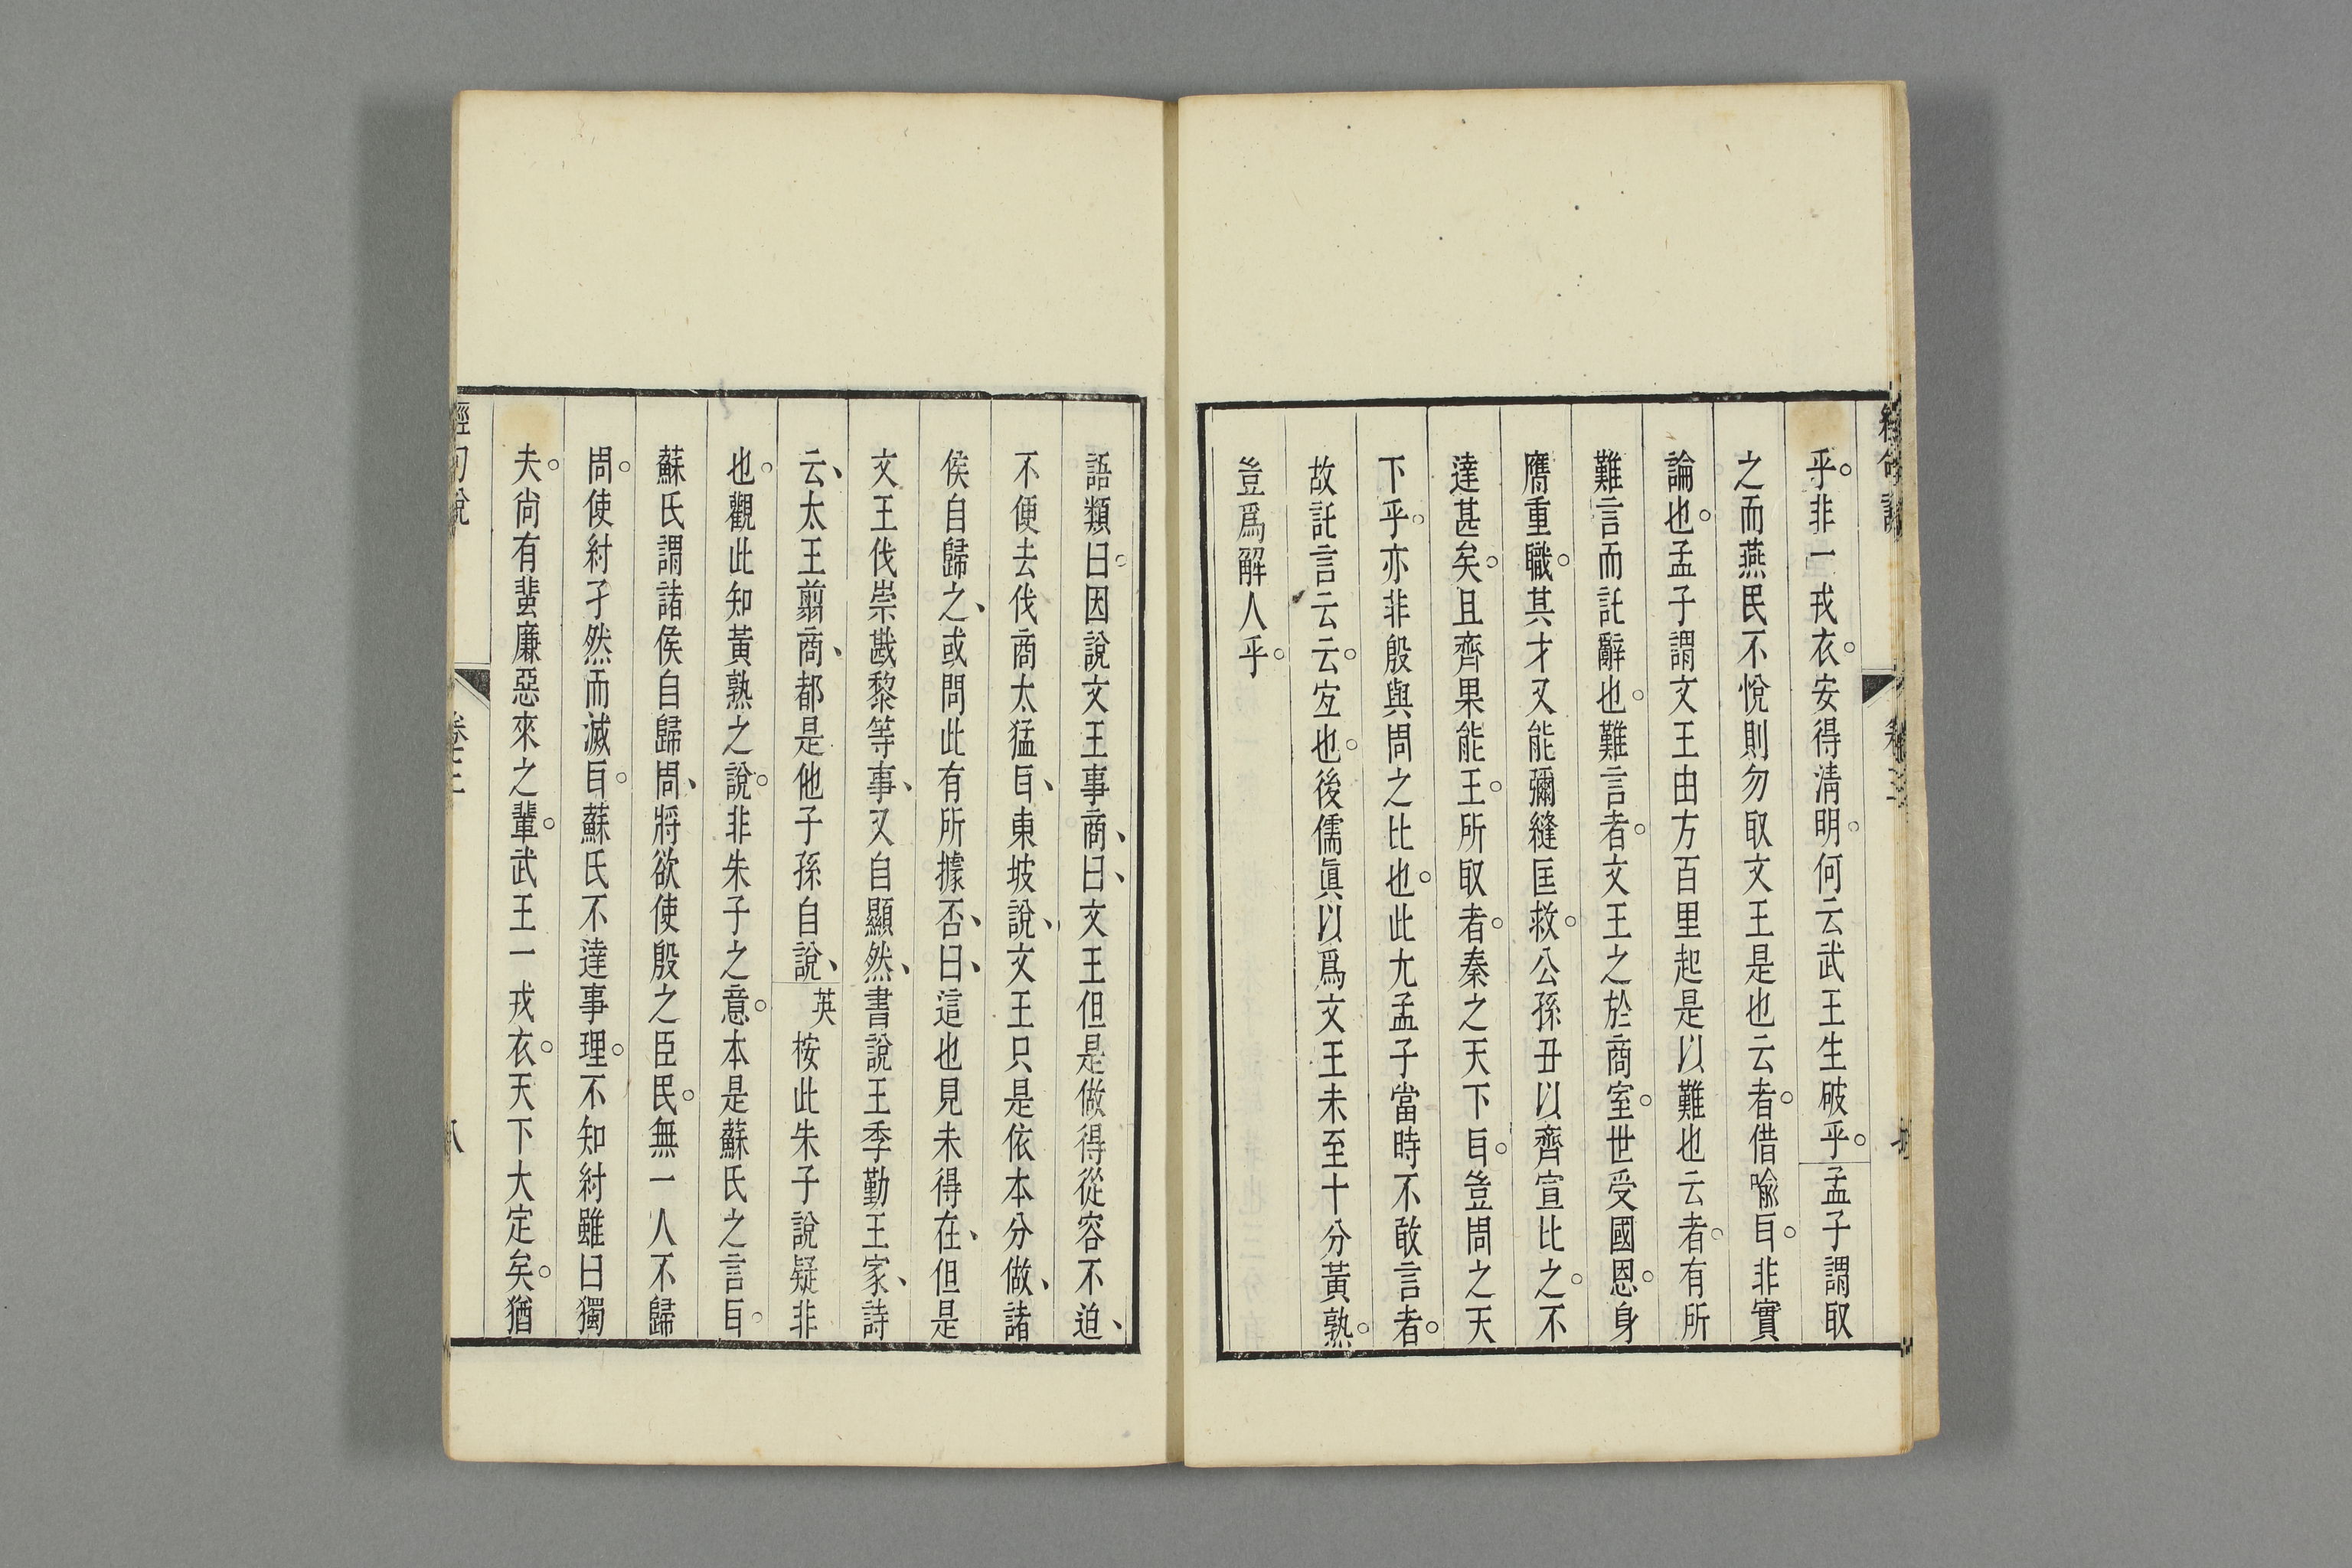 乎。非一戎衣。安得淸明。何云武王生破乎。孟子謂取
之而燕民不悅則勿取文王是也云者。借喩耳。非實
論也。孟子謂文王由方百里起是以難也云者。有所
難言而託辭也。難言者。文王之於商室。世受國恩。身
膺重職。其才又能彌縫匡救。公孫丑以齊宣比之。不
達甚矣。且齊果能王。所取者。秦之天下耳。豈周之天
下乎。亦非殷與周之比也。此尤孟子當時不敢言者。
故託言云云。宐也。後儒眞以爲文王未至十分黃熟。
豈爲解人乎。
語類曰。因說文王事商、曰、文王但是做得從容不迫、
不便去伐商太猛耳、東坡說、文王只是依本分做、諸
侯自歸之、或問此有所據否、曰、這也見未得在、但是
文王伐崇戡黎等事、又自顯然、書說王季勤王家、詩
云、太王翦商、都是他子孫自說、英按此朱子說疑非
也。觀此知黃熟之說。非朱子之意。本是蘇氏之言耳。
蘇氏謂諸侯自歸周、將欲使殷之臣民。無一人不歸
周。使紂孑然而滅耳。蘇氏不達事理。不知紂雖曰獨
夫。尙有蜚廉惡來之輩。武王一戎衣。天下大定矣。猶